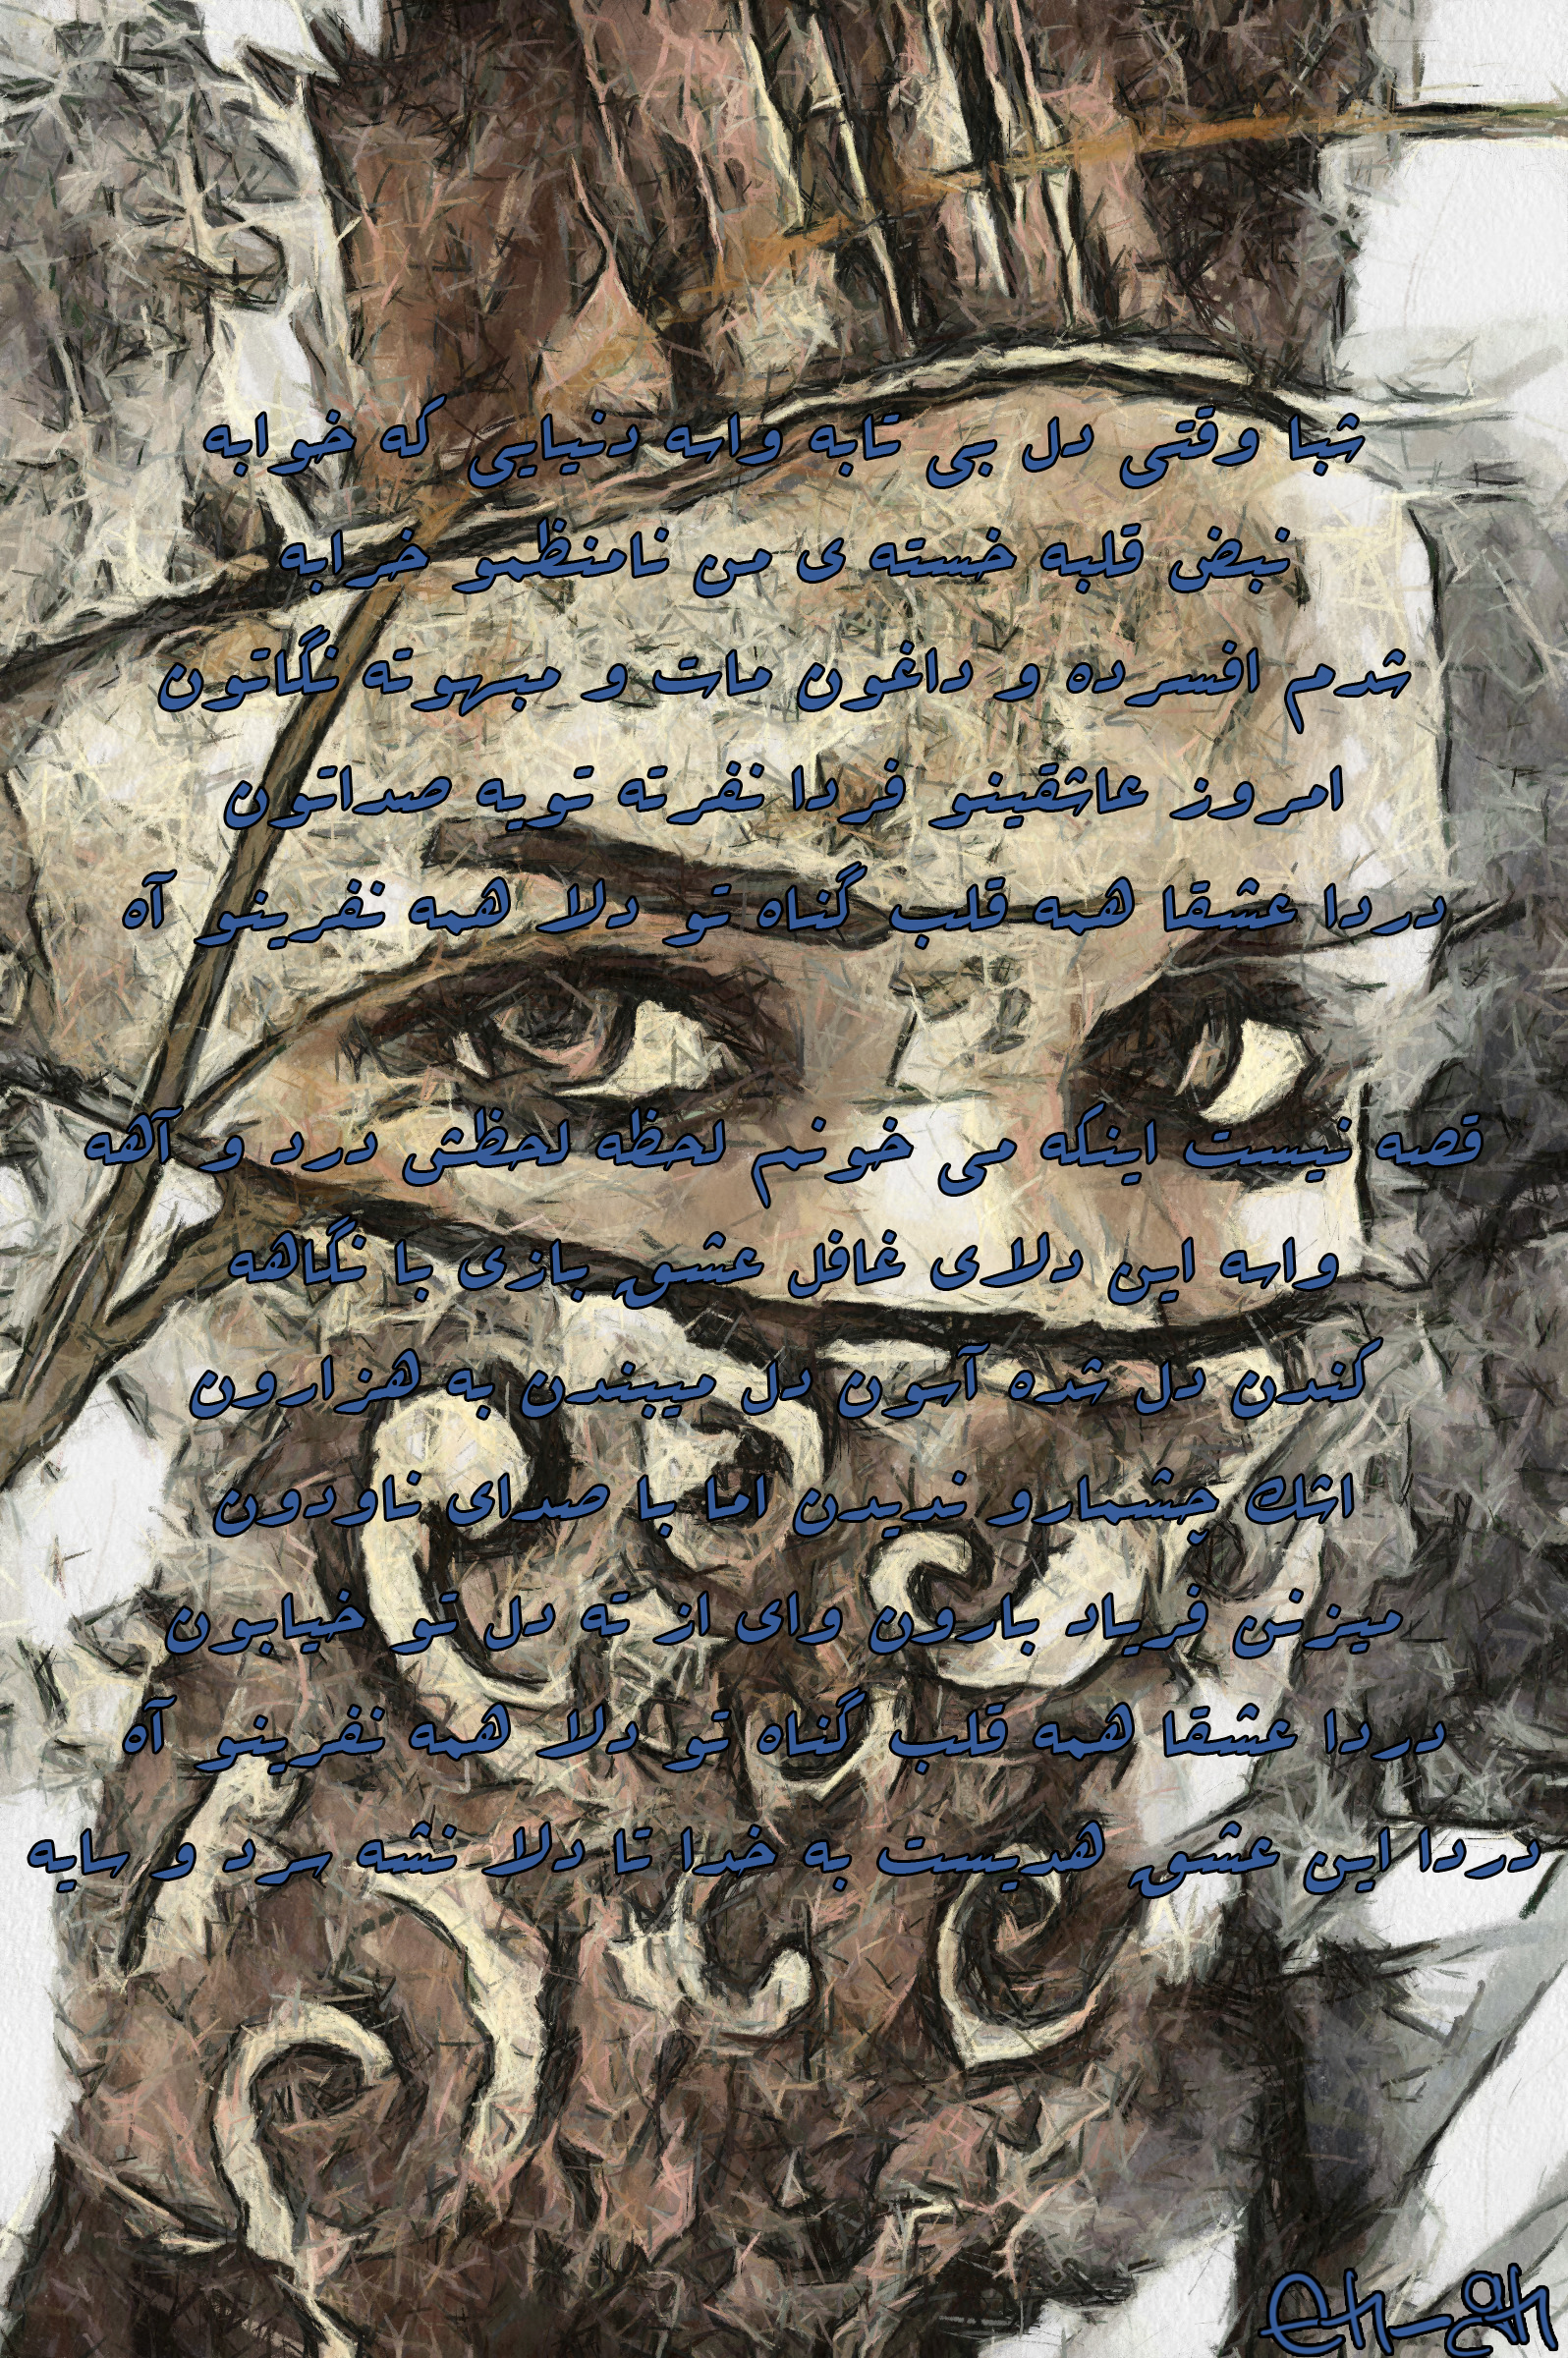 شبا وقتی دل بی تابه واسه دنیایی که خوابه
نبض قلبه خسته ی من نامنظمو خرابه
شدم افسرده و داغون مات و مبهوته نگاتون
امروز عاشقینو فردا نفرته تویه صداتون
دردا عشقا همه قلب گناه تو دلا همه نفرینو آه
قصه نیست اینکه می خونم لحظه لحظش درد و آهه
واسه این دلای غافل عشق بازی با نگاهه
کندن دل شده آسون دل میبندن به هزارون
اشك چشمارو ندیدن اما با صدای ناودون
میزنی فریاد بارون وای از ته دل تو خیابون
دردا عشقا همه قلب گناه تو دلا همه نفرینو آه
دردا این عشق هدیست به خدا تا دلا نشه سرد و سایه